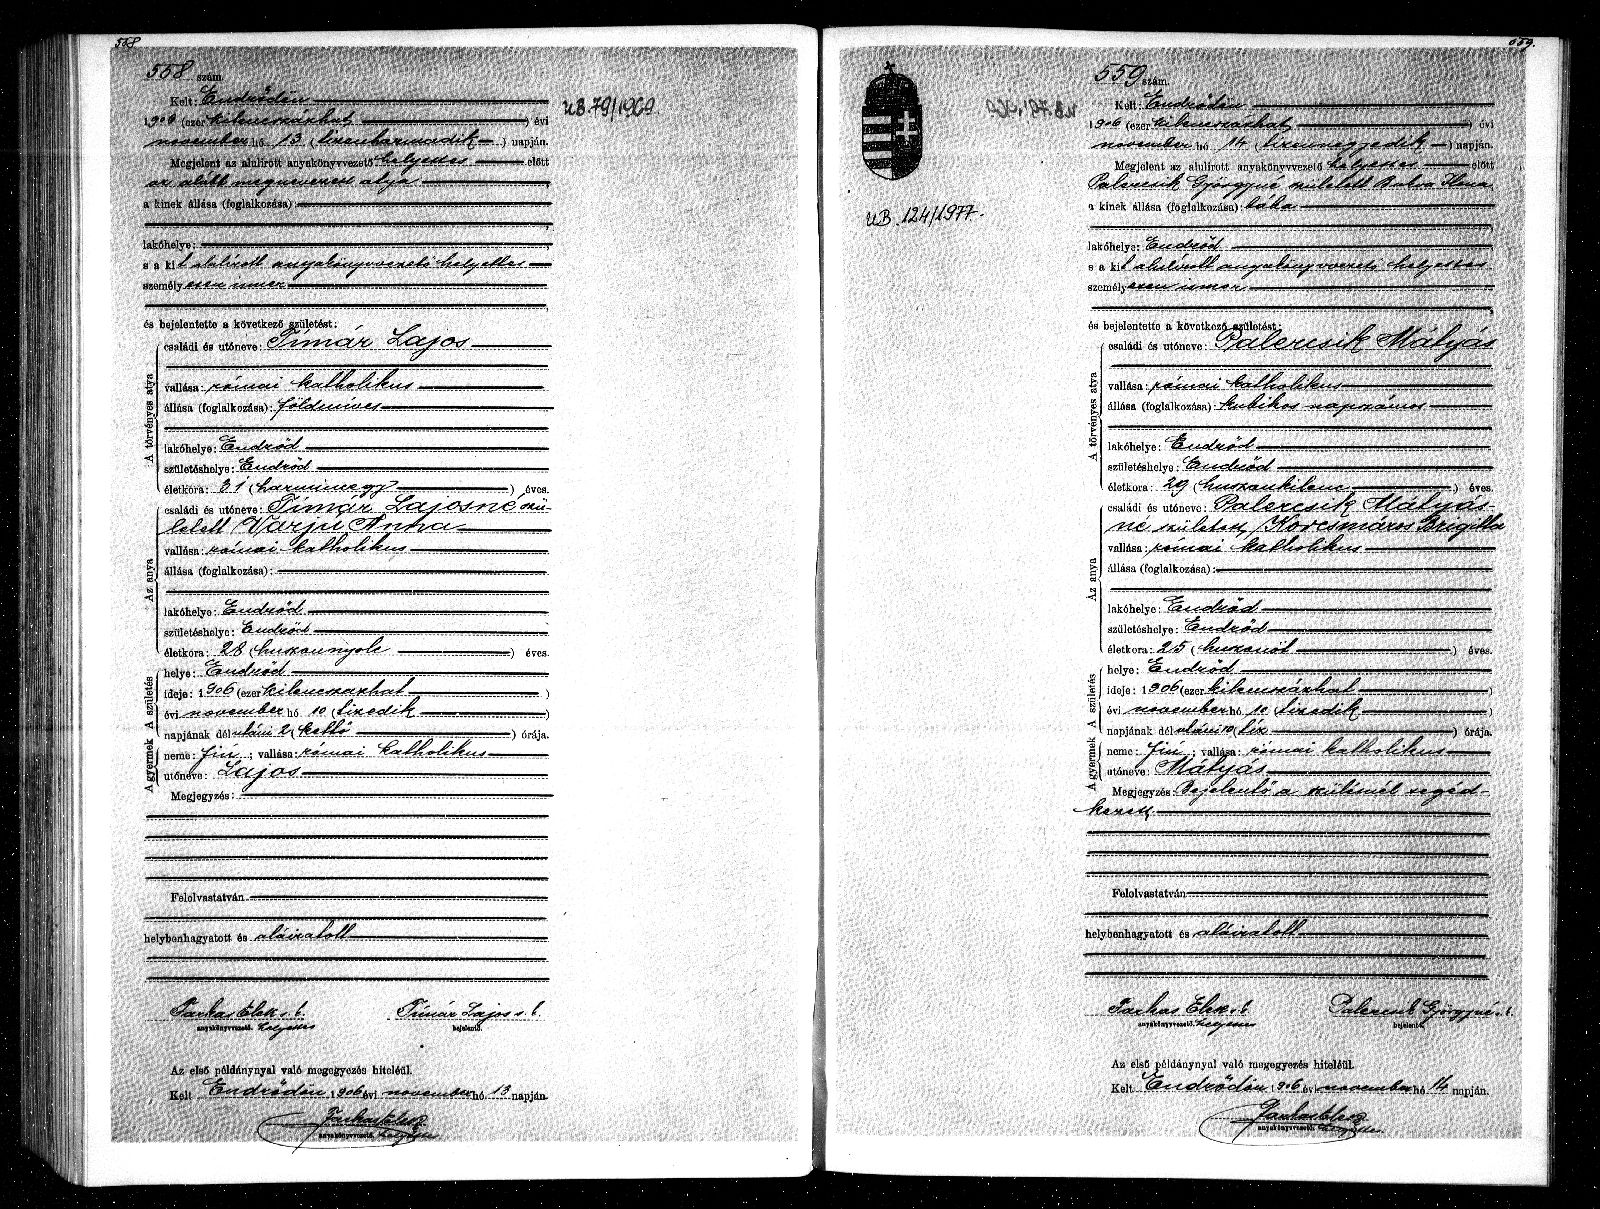 558
558 szám
Kelt: Endrődön
1906 (ezer kilenczszázhat) évi
november hó 13 (tizenharmadik) napján.
Megjelent az alulirott anyakönyvvezető helyettes előtt
az alább megnevezett atya
a kinek állása (foglalkozása):
lakóhelye:
s a kit alulirott anyakönyvvezető helyettes
személyesen ismer
és bejelentette a következő születést:
A törvényes atya
családi és utóneve: Tímár Lajos
vallása: római katholikus
állása (foglalkozása): földmíves
lakóhelye: Endrőd
születéshelye: Endrőd
életkora: 31 (harminczegy) éves.
Az anya
családi és utóneve: Tímár Lajosné szü-
letett Varju Anna
vallása: római katholikus
állása (foglalkozása):
lakóhelye: Endrőd
születéshelye: Endrőd
életkora: 28 (huszonnyolc) éves.
A születés
helye: Endrőd
ideje: 1906 (ezer kilenczszázhat)
évi november hó 10 (tizedik)
napjának délutáni 2 (kettő) órája.
A gyermek
neme: fiú; vallása: római katholikus
utóneve: Lajos
Megjegyzés:
Felolvastatván
helybenhagyatott és aláíratott
Farkas Elek s.k. Tímár Lajos s.k.
anyakönyvvezető. helyettes bejelentő.
Az első példánynyal való megegyezés hiteléül.
Kelt Endrődön 1906 évi november hó 13 napján.
Farkas Elek
anyakönyvvezető. helyettes
UB. 79/1969
559.
UB. 124/1977.
559 szám
Kelt: Endrődön
1906 (ezer kilenczszázhat) évi
november hó 14 (tizennegyedik) napján.
Megjelent az alulirott anyakönyvvezető helyettes előtt
Palercsik Györgyné született Balra Ilona
a kinek állása (foglalkozása): bába
lakóhelye: Endrőd
s a kit alulirott anyakönyvvezető helyettes
személyesen ismer
és bejelentette a következő születést:
A törvényes atya
családi és utóneve: Palercsik Mátyás
vallása: római katholikus
állása (foglalkozása): kubikos napszámos
lakóhelye: Endrőd
születéshelye: Endrőd
életkora: 29 (huszonkilenc) éves.
Az anya
családi és utóneve: Palercsik Mátyás-
né született Korcsmáros Brigitta
vallása: római katholikus
állása (foglalkozása):
lakóhelye: Endrőd
születéshelye: Endrőd
életkora: 25 (huszonöt) éves.
A születés
helye: Endrőd
ideje: 1906 (ezer kilenczszázhat)
évi november hó 10 (tizedik)
napjának délutáni 10 (tíz) órája.
A gyermek
neme: fiú; vallása: római katholikus
utóneve: Mátyás
Megjegyzés: Bejelentő a szülésnél segéd-
kezett.
Felolvastatván
helybenhagyatott és aláíratott
Farkas Elek s.k. Palercsik Györgyné s.k.
anyakönyvvezető. helyettes bejelentő.
Az első példánynyal való megegyezés hiteléül.
Kelt Endrődön 1906 évi november hó 14 napján.
Farkas Elek
anyakönyvvezető. helyettes